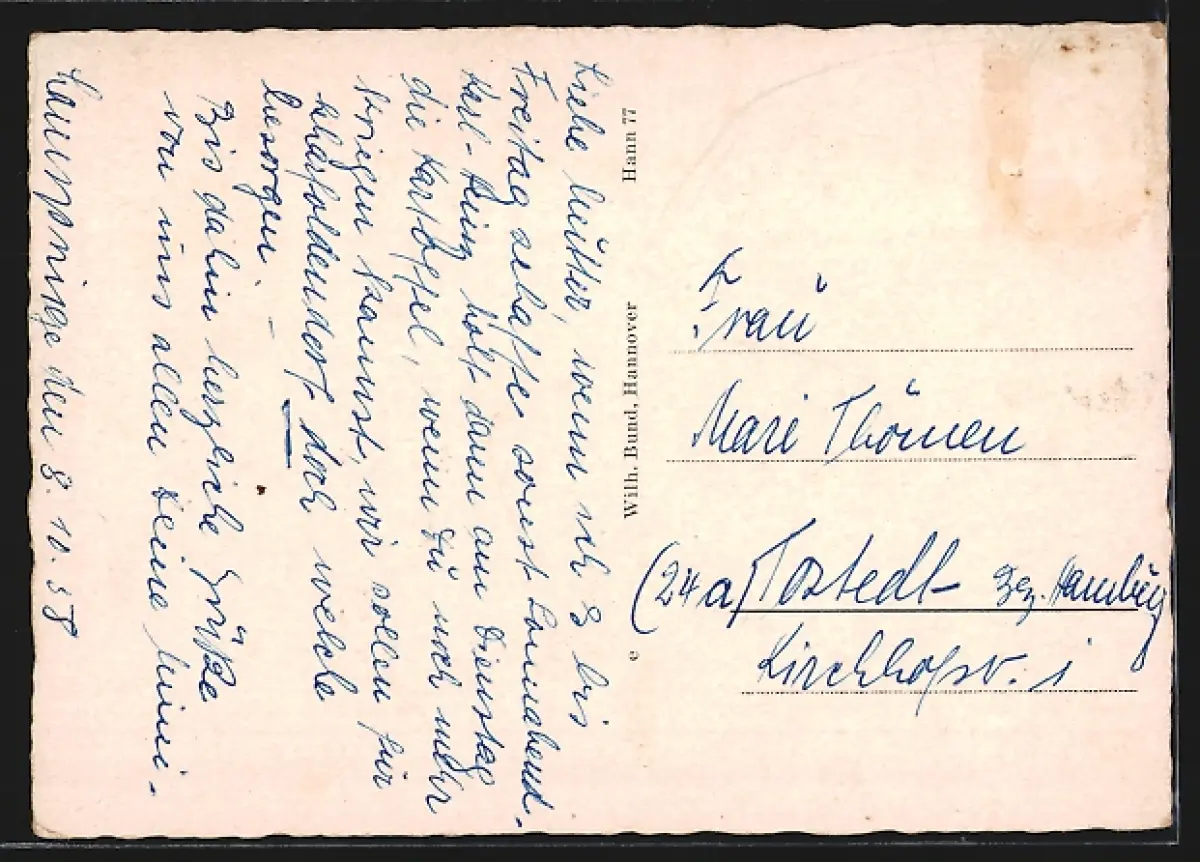 Liebe Mutter, wenn ich es bis
Freitag schaffe sonst Sonnabend.
Karl-Heinz holt dann am Dienstag
die Kartoffel, wenn Du noch mehr
kriegen kannst, wir sollen für
doch welche
besorgen. –
Bis dahin herzliche Grüße
von uns allen Deine Mimi.
den 8. 10. 58
Wilh. Bund, Hannover Hann 77
Frau
Mari Thömen
(24a) Tostedt Bez. Hamburg
Kirchhofstr. 1